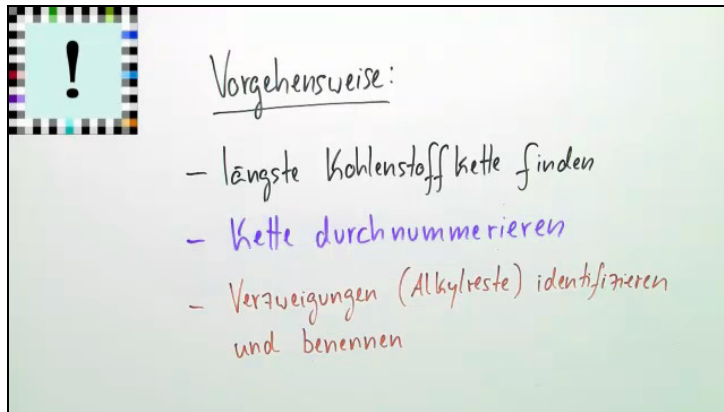 !
Vorgehensweise:
- längste Kohlenstoffkette finden
- Kette durchnummerieren
- Verzweigungen (Alkylreste) identifizieren
und benennen